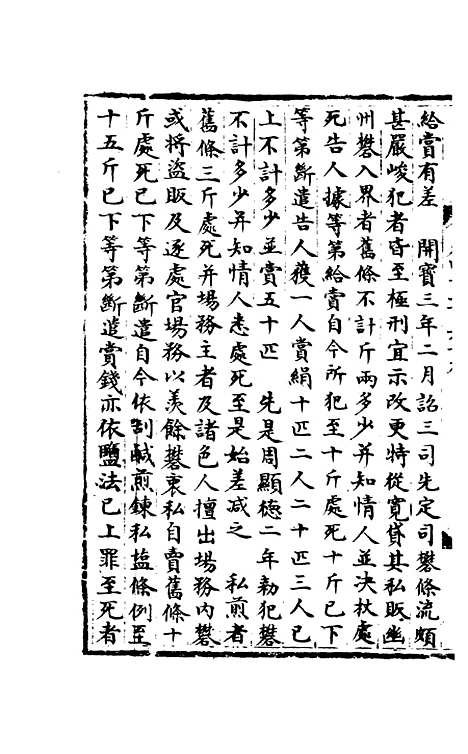 給賞有差　開寶三年二月詔三司先定司礬條流頗
甚嚴峻犯者皆至極刑宜示改更特從寬貸其私販幽
州礬入界者舊條不計斤兩多少并知情人並决杖處
死告人據等第給賣自今所犯至十斤處死十斤已下
等第斷遣告人獲一人賞絹十匹二人二十匹三人已
上不計多少並賞五十匹　先是周顯德二年勑犯礬
不計多少并知情人悉處死至是始差減之　私煎者
舊條三斤處死并場務主者及諸色人擅出場務內礬
或將盜販及逐處官場務以羡餘礬衷私自賣舊條十
斤處死已下等第斷遣自今依刮鹹煎鍊私塩條例至
十五斤已下等第斷遣賞錢亦依鹽法已上罪至死者